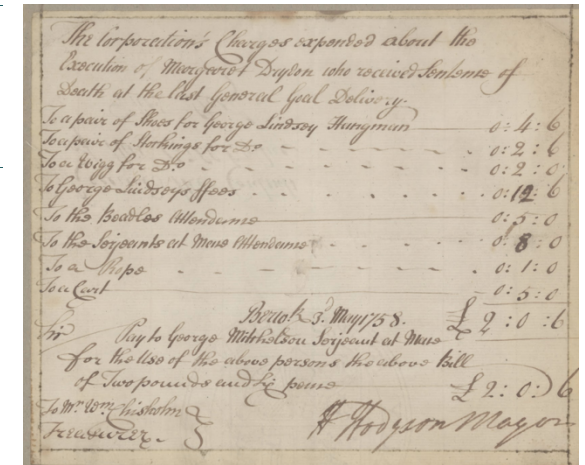 The Corporation's Charges expended about the
Execution of Margaret Dryden who received Sentence of
Death at the last General Goal Delivery.
To a pair of Shoes for George Lindsey Hangman 0: 4: 6
To a pair of Stockings for Do 0: 2: 6
To a Wigg for Do 0: 2: 0
To George Lindseys ffees 0: 12: 6
To the Beadles Attendance 0: 5: 0
To the Serjeants at Mace Attendance 8: 0
To a Rope 0: 1: 0
To a Cart 0: 5: 0
Berwk 3d. May 1758. £ 2: 0: 6
Sir Pay to George Mitchelson Serjeant at Mace
for the Use of the above persons the above Bill
of Two pounds and Six pence £ 2: 0: 6
To Mr. Wm. Chisholm
Treasurer. H Hodgson Mayor